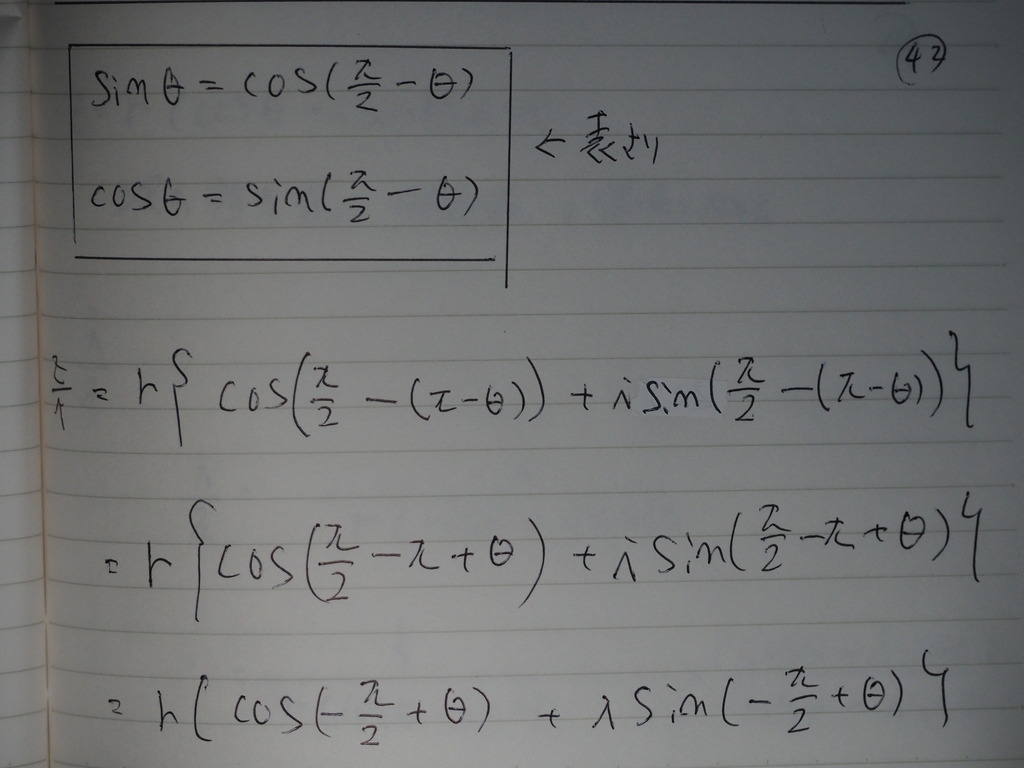 ㊸
sinθ = cos(π/2 - θ)
← 表より
cosθ = sin(π/2 - θ)
z/i = r{cos(π/2 - (π-θ)) + i sin(π/2 - (π-θ))}
= r{cos(π/2 - π + θ) + i sin(π/2 - π + θ)}
= r{cos(-π/2 + θ) + i sin(-π/2 + θ)}